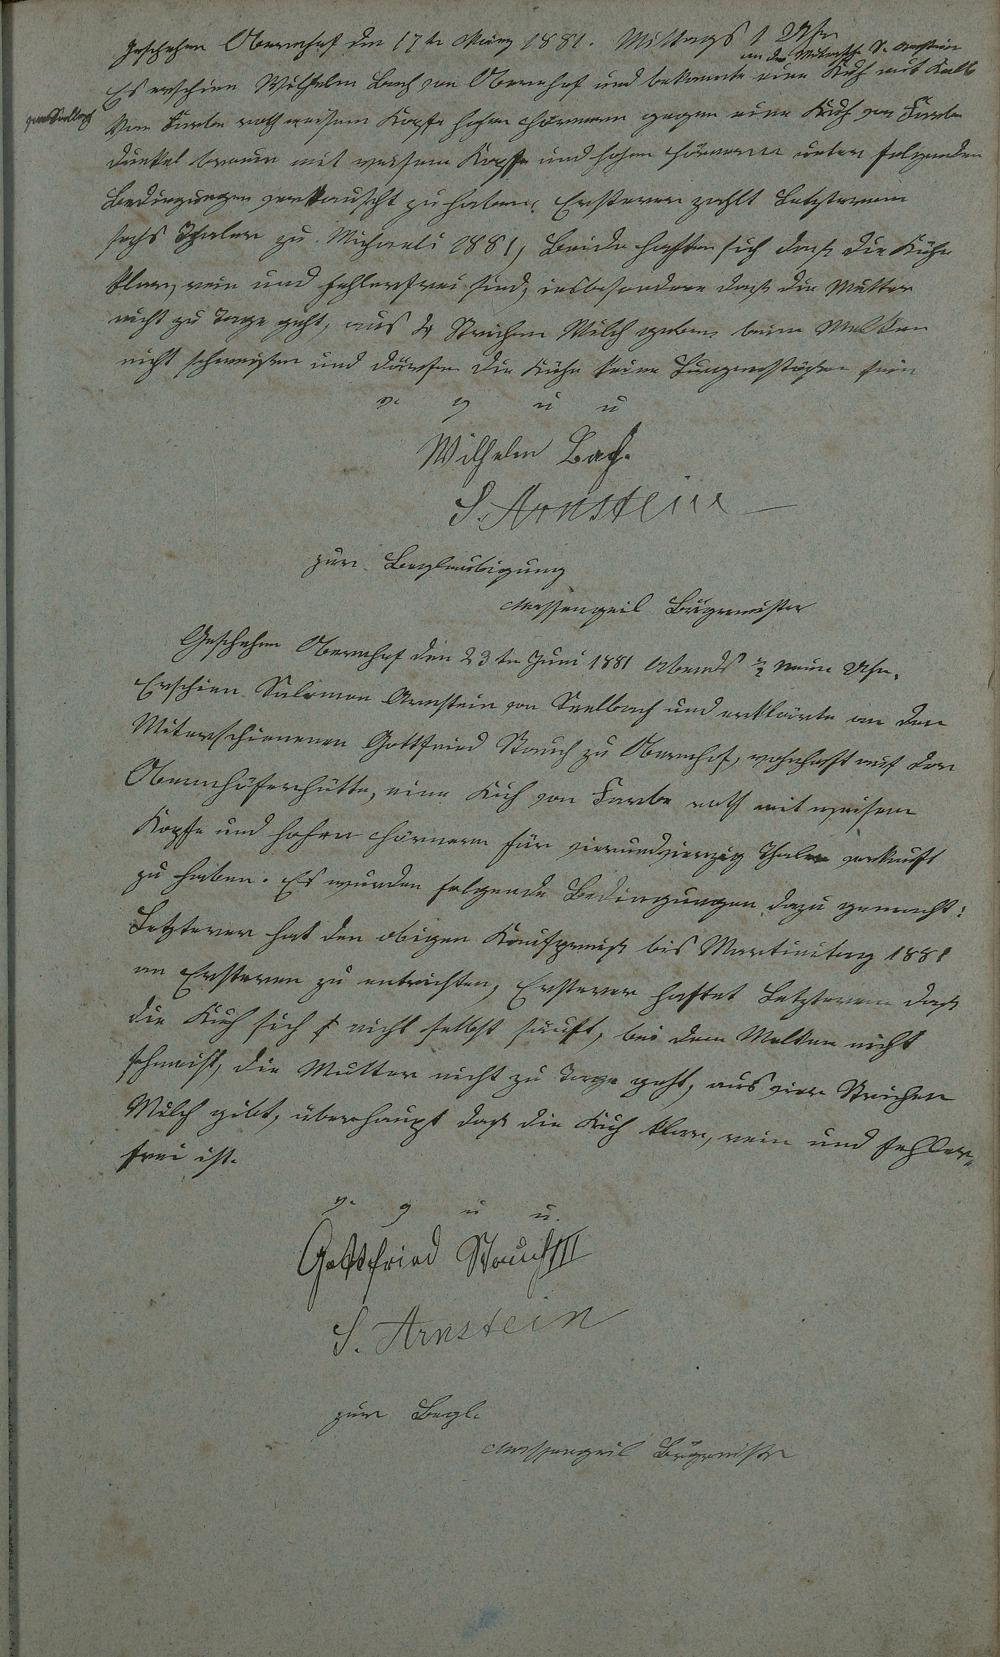 Geschehen Obernhof den 17ten März 1881. Mittags 1 Uhr
an den Miterschie. S. Arnstein
Es erschien Wilhelm Bach von Obernhof und bekannte eine Kuh mit Kalb
von Seelbach
Von Farbe roth weisem Kopfe hohen Hörnern gegen eine Kuh von Farbe
dunkel braun mit weisem Kopfe und hohen Hörnern unter folgenden
Bedingungen vertauscht zu haben. Ersterer zahlt Letzterem
sechs Thaler zu Michaeli 1881, Beide haften sich dafür die Kühe
klar, rein und fehlerfrei sind, insbesondere daß die Mutter
nicht zu Tage geht, aus 4 Strichen Milch geben, beim Melken
nicht schmeißen und dürfen die Kühe keine sein
v. g u u
Wilhelm Bach.
S. Arnstein
zur Beglaubigung
Bürgermeister
Geschehen Obernhof den 23ten Juni 1881 Abends ½ neun Uhr.
Erschien Salomon Arnstein von Seelbach und erklärte an den
Miterschienenen Gottfried Stauch zu Obernhof, wohnhaft auf der
Obernhöferhütte, eine Kuh von Farbe roth mit weisem
Kopfe und hohen Hörnern für vierundvierzig Thaler verkauft
zu haben. Es wurden folgende Bedingungen dazu gemacht:
Letzterer hat den obigen Kaufpreiß bis Martinitag 1881
an Ersteren zu entrichten, Ersterer haftet Letzterem daß
die Kuh sich nicht selbst säuft, bei dem Melken nicht
schmeist, die Mutter nicht zu Tage geht, aus vier Strichen
Milch gibt, überhaupt daß die Kuh klar, rein und fehler-
frei ist.
v. g u u.
Gottfried Stauch III
S. Arnstein
zur Begl.
Bürgermeister